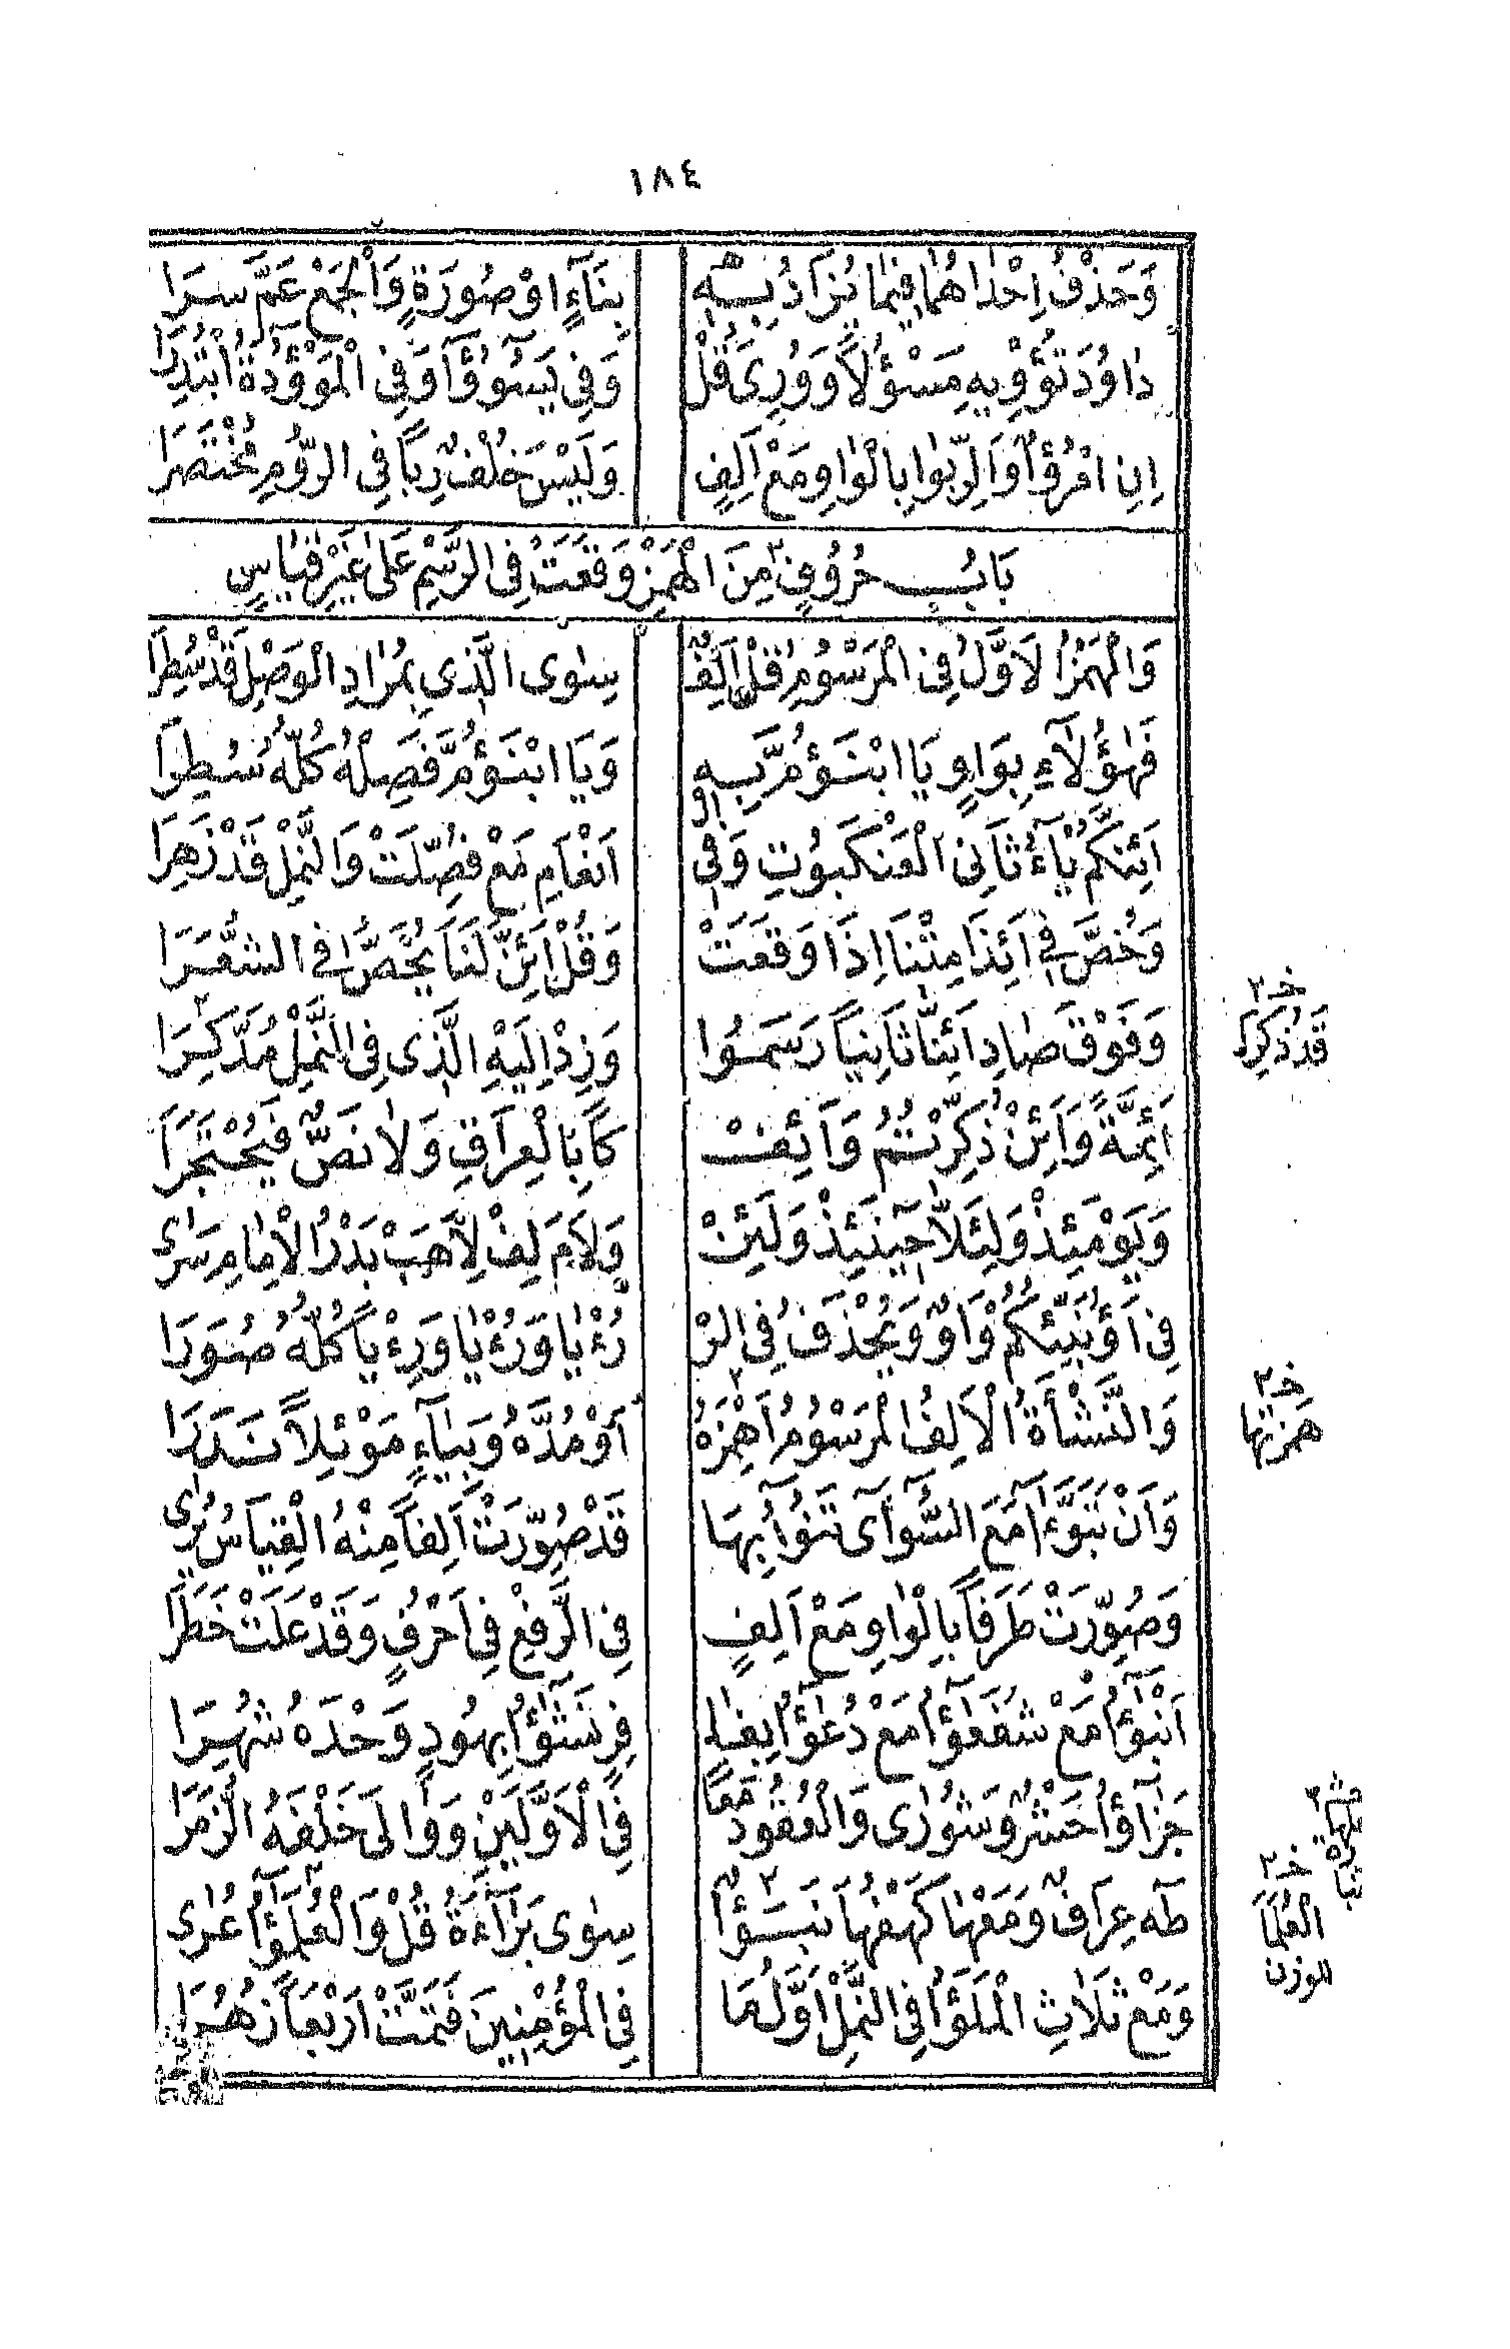 ١٨٤
وَحَذْفُ اِحْدٰاهُمٰا فِيمٰا يُزَادُ بِهِ بِنَآءٍ اوْ صُورَةٍ وَالْجَمْعُ عَمَّ سَرَا
دٰاوُدَ تُؤْوِيهِ مَسْؤُلًا وَوُرِىَ قُلْ وَفِى يَسُوؤُا وَفِى الْمَوْؤُدَةُ ابْتُدِرَا
اِنِ امْرُؤٌا وَالرِّبٰوا بِالْوٰاوِ مَعْ اَلِفٍ وَلَيْسَ خُلْفُ رِبًا فِى الرُّومِ مُخْتَصَرَا
بَابُ حُرُوفٍ مِنَ الْهَمْزِ وَقَعَتْ فِى الرَّسْمِ عَلٰى غَيْرِ قِيٰاسٍ
وَالْهَمْزُ الْاَوَّلُ فِى الْمَرْسُومِ قُلْ اَلِفٌ سِوٰى الَّذِى بِمُرٰادِ الْوَصْلِ قَدْ سُطِرَا
فَهٰؤُلَآءِ بِوَاوٍ يَا ابْنَؤُمَّ بِهِ وَيَا ابْنَؤُمَّ فَصِلْهُ كُلَّهُ سُطِرَا
اَئِنَّكُمْ يٰٓاءُ ثَانِى الْعَنْكَبُوتِ وَفِى الْ اَنْعَامِ مَعْ فُصِّلَتْ وَالنَّمْلِ قَدْ زَهِرَا
وَخُصَّ فِى اَئِذَا مِتْنَا اِذَا وَقَعَتْ وَقُلْ اَئِنَّ لَنَا يُخَصُّ فِى الشُّعَرَا
وَفَوْقَ صٰادِ اَئِنَّا ثَانِيًا رَسَمُوا وَزِدْ اِلَيْهِ الَّذِى فِى النَّمْلِ مُدَّكِرَا
اَئِمَّةً وَاَئِنْ ذُكِّرْتُمُ وَاَئِفْكًا بِالْعِرَاقِ وَلَا نَصٌّ فَيُحْتَجَرَا
وَيَوْمَئِذْ وَلِئَلَّا حِينَئِذْ وَلَئِنْ وَلَامَ لِفْ لِاَهَبْ بَدْرُ الْاِمٰامِ سَرٰى
فِى اَؤُنَبِّئُكُمُ وَاوٌ وَيُحْذَفُ فِى الرْ رُءْيٰا وَرُءْيٰا وَرِءْيًا كُلُّهُ صُوَرَا
وَالنَّشْأَةُ الْاَلِفُ الْمَرْسُومُ هَمْزَهُ اَوْ مُدَّهُ وَبِيٰآءٍ مَوْئِلًا نَدَرَا
وَاَنْ تَبَوَّءَا مَعَ السُّوآى تَنُوأُ بِهَا قَدْ صُوِّرَتْ اَلِفًا مِنْهُ الْقِيَاسُ بُرِى
وَصُوِّرَتْ طَرَفًا بِالْوٰاوِ مَعْ اَلِفٍ فِى الرَّفْعِ فِى اَحْرُفٍ وَقَدْ عَلَتْ خَطَرَا
اَنْبٰؤُا مَعْ شُفَعٰؤُا مَعْ دُعٰؤُا بِغٰافِرِ نَشٰؤُا بِهُودٍ وَحْدَهُ شُهِرَا
جَزٰآؤُا حَشْرٌ وَشُورٰى وَالْعُقُودُ مَعًا فِى الْاَوَّلَيْنِ وَوَالٰى خَلْفَهُ الزُّمَرَا
طٰهٰ عِرَاقٌ وَمَعْهَا كَهْفُهَا نَبَؤٌا سِوٰى بَرَآءَةَ قُلْ وَالْعُلَمٰؤُا عُرٰى
وَمَعْ ثَلَاثِ الْمَلَؤُا فِى النَّمْلِ اَوَّلُ مَا فِى الْمُؤْمِنِينَ فَتَمَّتْ اَرْبَعًا زُهُرَا
خـ ٢
قَدْ ذُكِرَا
خـ ٢
هَمْزَتُهَا
خـ ٢
الْعُلَمَا
للوزن